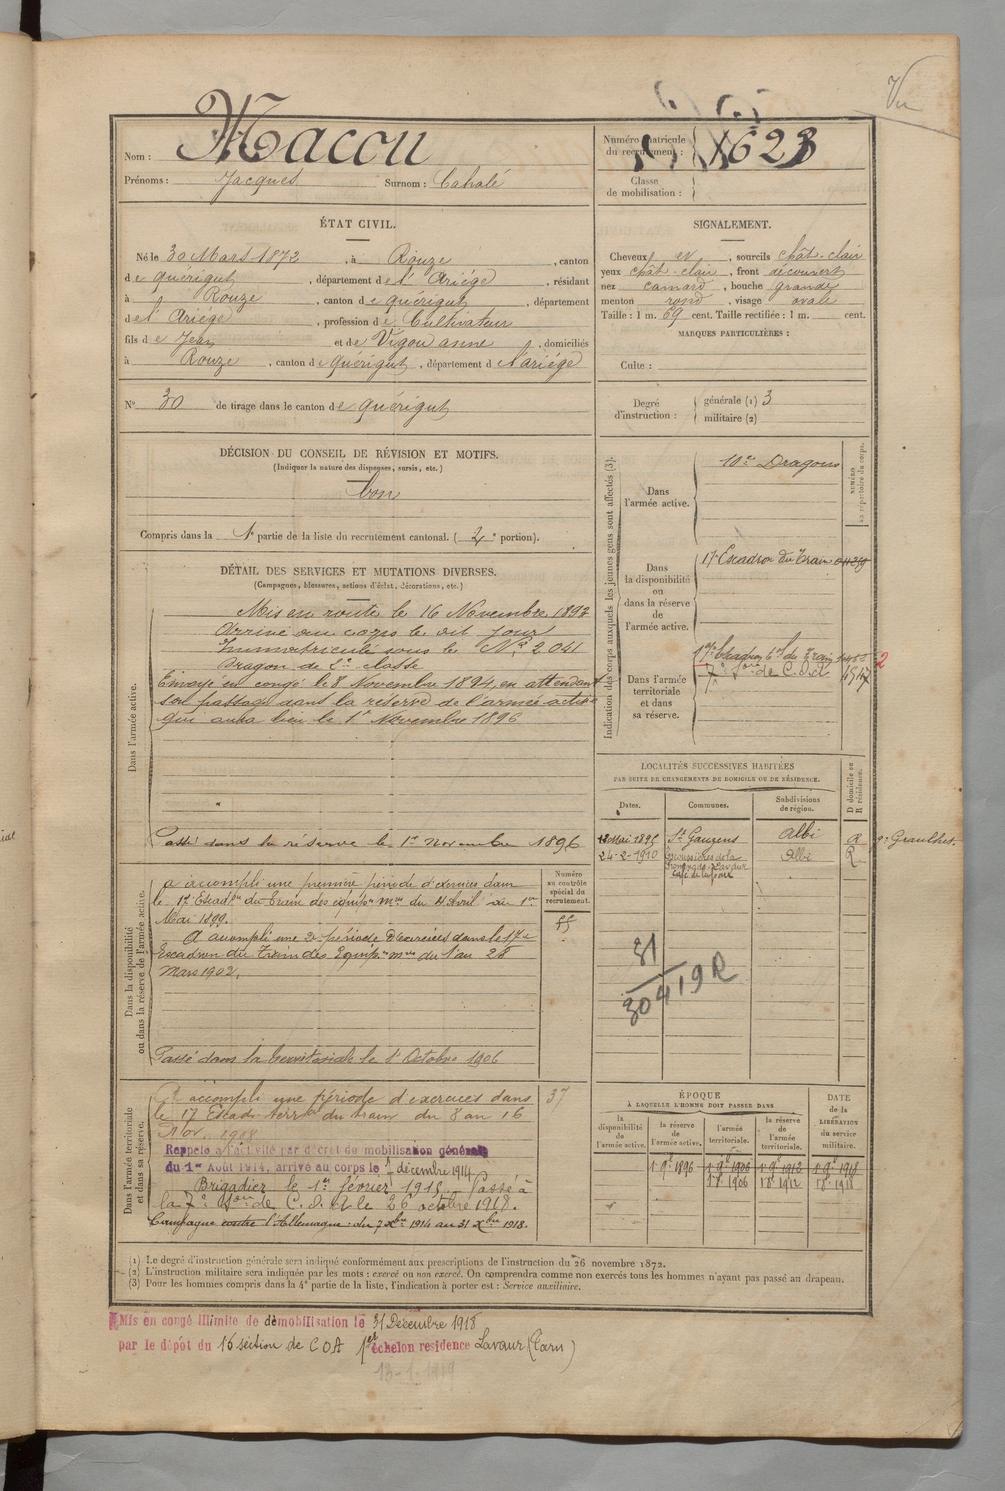 Vu
Nom : Macou
Numéro matricule du recrutement : 1623
Prénoms : Jacques Surnom : Cabalé
Classe de mobilisation :
ÉTAT CIVIL.
Né le 30 Mars 1872, à Rouze, canton
de Quérigut, département de l'Ariége, résidant
à Rouze, canton de Quérigut, département
de l'Ariége, profession de Cultivateur
fils de Jean et de Vigou anne, domiciliés
à Rouze, canton de Quérigut, département d l'ariége
SIGNALEMENT.
Cheveux et, sourcils chât-clair
yeux chât-clair, front découvert
nez camard, bouche grande
menton rond, visage ovale
Taille : 1 m. 69 cent. Taille rectifiée : 1 m. cent.
MARQUES PARTICULIÈRES :
Culte :
N° 30 de tirage dans le canton de Quérigut
Degré d'instruction : générale (1) 3
militaire (2)
DÉCISION DU CONSEIL DE RÉVISION ET MOTIFS.
(Indiquer la nature des dispenses, sursis, etc.)
bon
Compris dans la 1e partie de la liste du recrutement cantonal. (2e portion).
Indication des corps auxquels les jeunes gens sont affectés (3).
NUMÉRO au répertoire du corps.
Dans l'armée active.
10e Dragons
Dans la disponibilité ou dans la réserve de l'armée active.
17e Escadron du Train
Dans l'armée territoriale et dans sa réserve.
17e Escadron terl du Train
7e Son de C.O.A
2
DÉTAIL DES SERVICES ET MUTATIONS DIVERSES.
(Campagnes, blessures, actions d'éclat, décorations, etc.)
Dans l'armée active.
Mis en route le 16 Novembre 1892
Arrivé au corps le dit jour
Immatriculé sous le N° 2041
Dragon de 2e classe
Envoyé en congé le 8 Novembre 1894, en attendant
son passage dans la réserve de l'armée active
qui aura lieu le 1er Novembre 1896
Passé dans la réserve le 1er novembre 1896
LOCALITÉS SUCCESSIVES HABITÉES
PAR SUITE DE CHANGEMENTS DE DOMICILE OU DE RÉSIDENCE.
Dates. Communes. Subdivisions de région. D domicile ou R résidence.
Mai 1896 St Gauzens Albi D pr Graulhet.
24-2-1910 Lavaur Albi R
31
30419R
Dans la disponibilité ou dans la réserve de l'armée active.
Numéro au contrôle spécial du recrutement.
ff
A accompli une première période d'exercices dans
le 17e Escadon du train des équip. mres du 4 Avril au 1er
Mai 1899.
A accompli une 2e période d'exercices dans le 17e
Escadron du Train des Equip. mres du 1 au 28
Mars 1902.
Passé dans la territoriale le 1er Octobre 1906
Dans l'armée territoriale et dans sa réserve.
37
A accompli une période d'exercices dans
le 17 Escad. terral du train du 8 au 16
Nov. 1908
Rappelé à l'activité par décret de mobilisation générale
du 1er Août 1914, arrivé au corps le 7 décembre 1914
Brigadier le 1er février 1918. Passé à
la 7e Son de C.O.A le 26 octobre 1918.
Campagne contre l'Allemagne : du 7 Xbre 1914 au 31 Xbre 1918.
ÉPOQUE
À LAQUELLE L'HOMME DOIT PASSER DANS
la disponibilité de l'armée active. la réserve de l'armée active. l'armée territoriale. la réserve de l'armée territoriale.
DATE de la LIBÉRATION du service militaire.
1 9e 1896 1 9e 1906 1 9e 1912 1 9e 1918
1 8e 1906 1 8e 1912 1 8e 1918
(1) Le degré d'instruction générale sera indiqué conformément aux prescriptions de l'instruction du 26 novembre 1872.
(2) L'instruction militaire sera indiquée par les mots : exercé ou non exercé. On comprendra comme non exercés tous les hommes n'ayant pas passé au drapeau.
(3) Pour les hommes compris dans la 4e partie de la liste, l'indication à porter est : Service auxiliaire.
Mis en congé illimité de démobilisation le 31 Décembre 1918
par le dépôt du 16 section de COA 1er échelon résidence Lavaur (Tarn)
13-1-1919